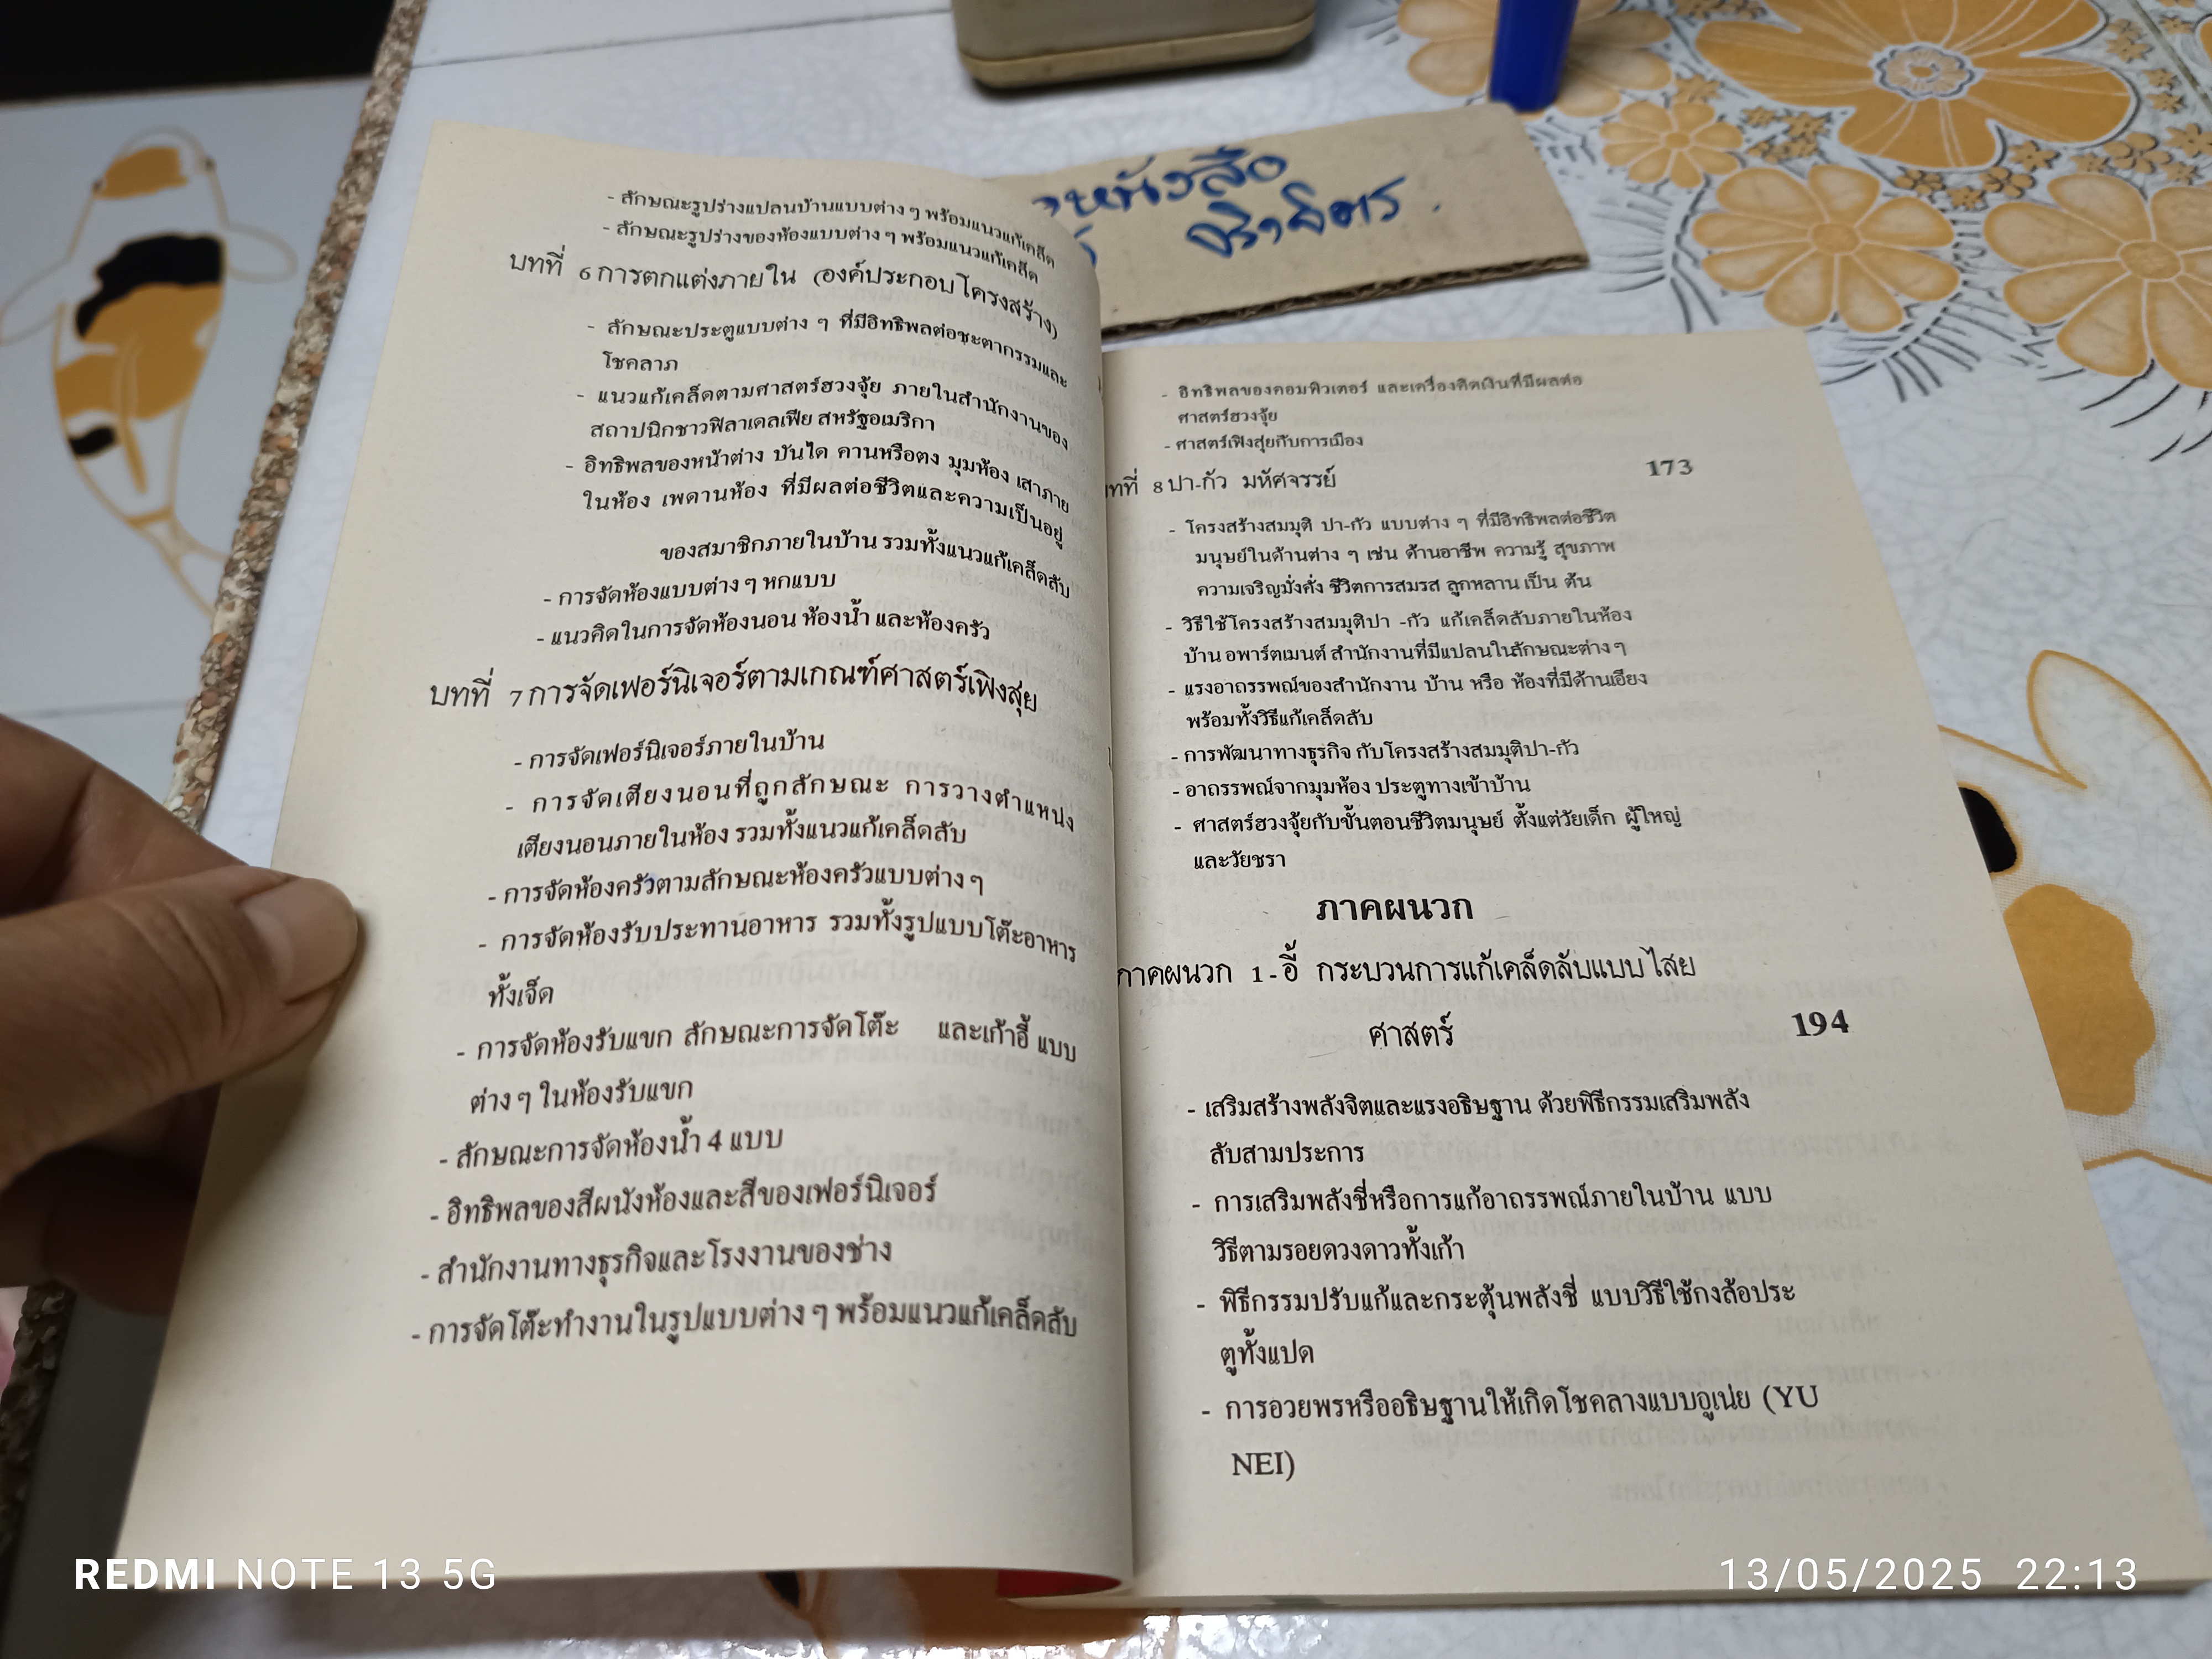 - ลักษณะรูปร่างแปลนบ้านแบบต่าง ๆ พร้อมแนวแก้เคล็ด
- ลักษณะรูปร่างของห้องแบบต่าง ๆ พร้อมแนวแก้เคล็ด
บทที่ 6 การตกแต่งภายใน (องค์ประกอบโครงสร้าง)
- ลักษณะประตูแบบต่าง ๆ ที่มีอิทธิพลต่อชะตากรรมและ
โชคลาภ
- แนวแก้เคล็ดตามศาสตร์ฮวงจุ้ย ภายในสำนักงานของ
สถาปนิกชาวฟิลาเดลเฟีย สหรัฐอเมริกา
- อิทธิพลของหน้าต่าง บันได คานหรือตง มุมห้อง เสาภาย
ในห้อง เพดานห้อง ที่มีผลต่อชีวิตและความเป็นอยู่
ของสมาชิกภายในบ้าน รวมทั้งแนวแก้เคล็ดลับ
- การจัดห้องแบบต่าง ๆ หกแบบ
- แนวคิดในการจัดห้องนอน ห้องน้ำ และห้องครัว
บทที่ 7 การจัดเฟอร์นิเจอร์ตามเกณฑ์ศาสตร์เฟิงสุย
- การจัดเฟอร์นิเจอร์ภายในบ้าน
- การจัดเตียงนอนที่ถูกลักษณะ การวางตำแหน่ง
เตียงนอนภายในห้อง รวมทั้งแนวแก้เคล็ดลับ
- การจัดห้องครัวตามลักษณะห้องครัวแบบต่าง ๆ
- การจัดห้องรับประทานอาหาร รวมทั้งรูปแบบโต๊ะอาหาร
ทั้งเจ็ด
- การจัดห้องรับแขก ลักษณะการจัดโต๊ะ และเก้าอี้ แบบ
ต่าง ๆ ในห้องรับแขก
- ลักษณะการจัดห้องน้ำ 4 แบบ
- อิทธิพลของสีผนังห้องและสีของเฟอร์นิเจอร์
- สำนักงานทางธุรกิจและโรงงานของช่าง
- การจัดโต๊ะทำงานในรูปแบบต่าง ๆ พร้อมแนวแก้เคล็ดลับ
หนังสือ
- อิทธิพลของคอมพิวเตอร์ และเครื่องคิดเงินที่มีผลต่อ
ศาสตร์ฮวงจุ้ย
- ศาสตร์เฟิงสุ่ยกับการเมือง
ทที่ 8 ปา-กัว มหัศจรรย์ 173
- โครงสร้างสมมุติ ปา-กัว แบบต่าง ๆ ที่มีอิทธิพลต่อชีวิต
มนุษย์ในด้านต่าง ๆ เช่น ด้านอาชีพ ความรู้ สุขภาพ
ความเจริญมั่งคั่ง ชีวิตการสมรส ลูกหลาน เป็น ต้น
- วิธีใช้โครงสร้างสมมุติปา -กัว แก้เคล็ดลับภายในห้อง
บ้าน อพาร์ตเมนต์ สำนักงานที่มีแปลนในลักษณะต่าง ๆ
- แรงอาถรรพณ์ของสำนักงาน บ้าน หรือ ห้องที่มีด้านเอียง
พร้อมทั้งวิธีแก้เคล็ดลับ
- การพัฒนาทางธุรกิจ กับโครงสร้างสมมุติปา-กัว
- อาถรรพณ์จากมุมห้อง ประตูทางเข้าบ้าน
- ศาสตร์ฮวงจุ้ยกับขั้นตอนชีวิตมนุษย์ ตั้งแต่วัยเด็ก ผู้ใหญ่
และวัยชรา
ภาคผนวก
ภาคผนวก 1 - อี้ กระบวนการแก้เคล็ดลับแบบไสย
ศาสตร์ 194
- เสริมสร้างพลังจิตและแรงอธิษฐาน ด้วยพิธีกรรมเสริมพลัง
ลับสามประการ
- การเสริมพลังชี่หรือการแก้อาถรรพณ์ภายในบ้าน แบบ
วิธีตามรอยดวงดาวทั้งเก้า
- พิธีกรรมปรับแก้และกระตุ้นพลังชี่ แบบวิธีใช้กงล้อประ
ตูทั้งแปด
- การอวยพรหรืออธิษฐานให้เกิดโชคลางแบบอูเน่ย (YU
NEI)
REDMI NOTE 13 5G
13/05/2025 22:13